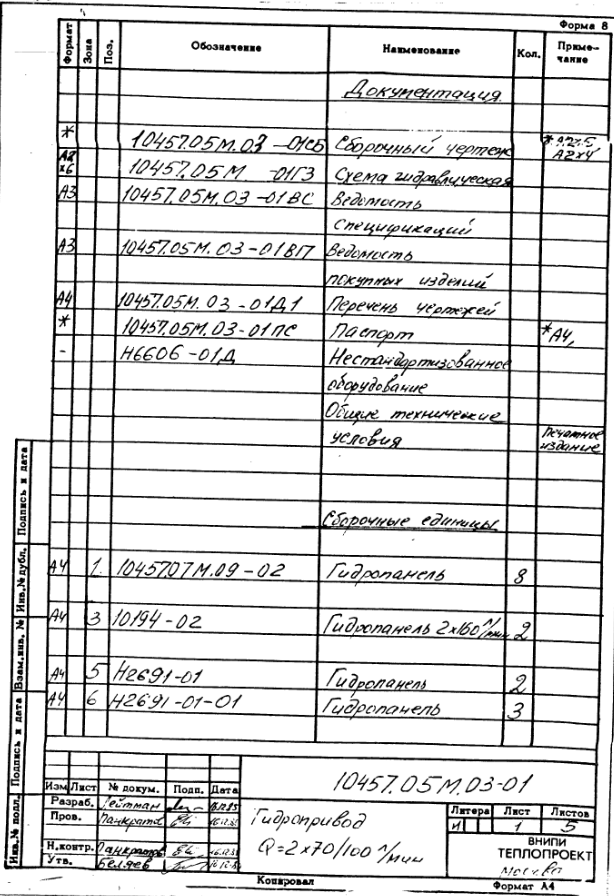 Форма 8
Формат Зона Поз. Обозначение Наименование Кол. Приме-
чание
Документация
* 10457.05М.03-01СБ Сборочный чертеж *
А2х6 10457.05М -01Г3 Схема гидравлическая А2х4
А3 10457.05М.03-01ВС Ведомость
спецификаций
А3 10457.05М.03-01ВП Ведомость
покупных изделий
А4 10457.05М.03-01Д1 Перечень чертежей
* 10457.05М.03-01ПС Паспорт *А4,
- Н6606-01Д Нестандартизованное
оборудование
Общие технические
условия Печатное
издание
Сборочные единицы
А4 1. 10457.07М.09-02 Гидропанель 8
А4 3 10194-02 Гидропанель 2х160 л/мин 2
А4 5 Н2691-01 Гидропанель 2
А4 6 Н2691-01-01 Гидропанель 3
Инв.№ подл. Подпись и дата Взам.инв. № Инв.№ дубл. Подпись и дата
10457.05М.03-01
Изм Лист № докум. Подп. Дата
Разраб. Гейтман
Пров. Панкратов
Н.контр. Панкратов
Утв. Беляев
Гидропривод
Q=2х70/100 л/мин
Литера Лист Листов
И 1 5
ВНИПИ
ТЕПЛОПРОЕКТ
Москва
Копировал Формат А4